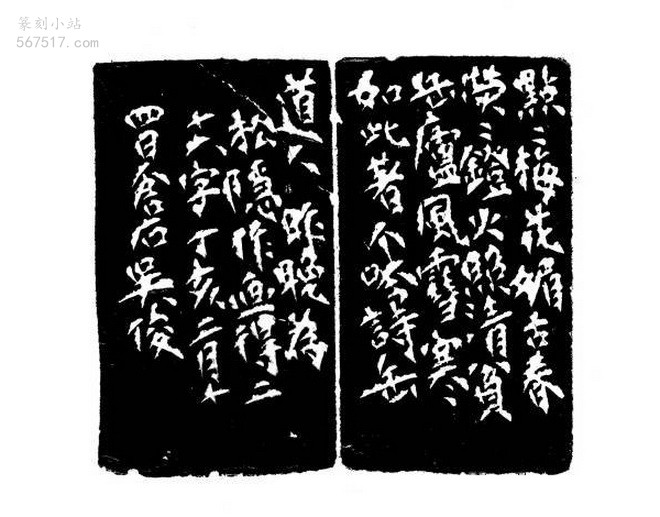 篆刻小站
567517.com
點〻梅花媚古春
熒〻鐙火照清貧
缶廬風雪寒
如此著个吟詩缶
道人 昨晚為
松隱作畫得二
十八字丁亥二月十
四日倉石吳俊